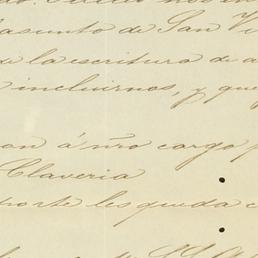 asunto de San Vi
de la escritura de a
incluirnos, y que
an á nro cargo p
Claveria
porte les queda c